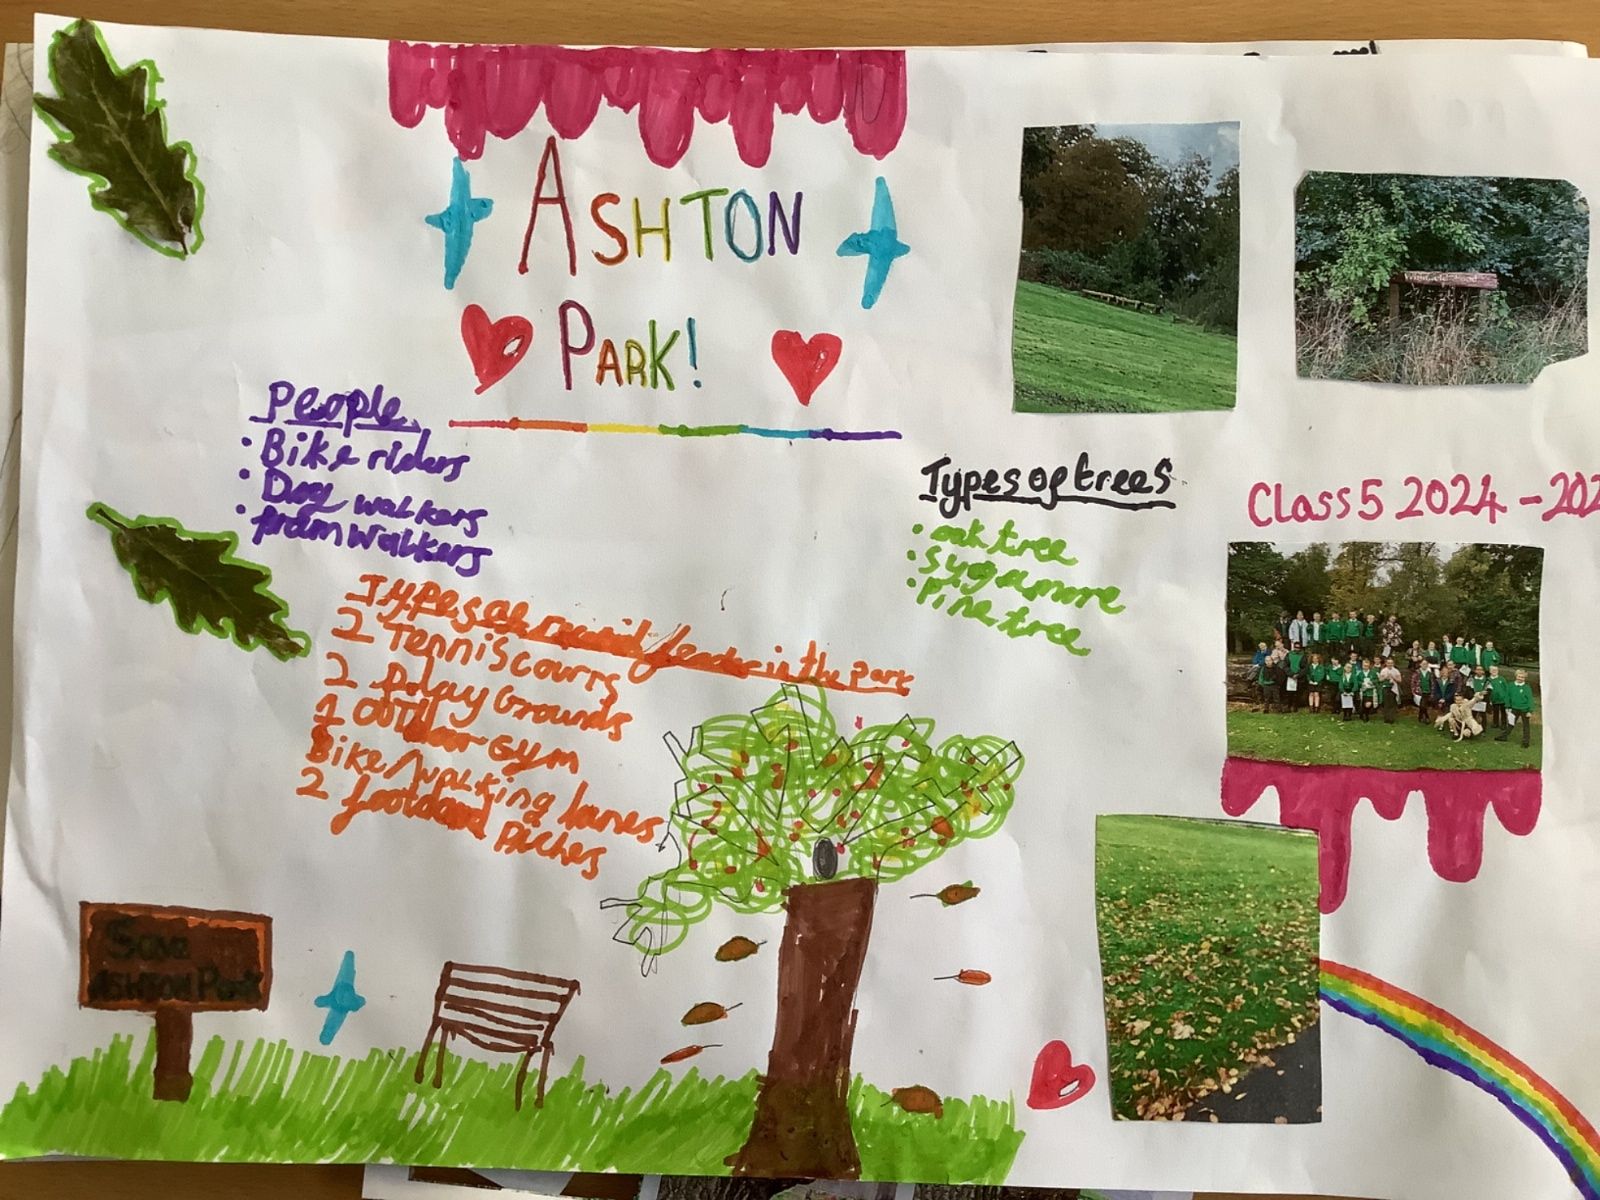 ASHTON
PARK!
People
• Bike riders
• Dog walkers
• pram walkers
Types of trees
• oak tree
• Sygamore
• Pine tree
Class 5 2024 - 202
Types in the park
2 Tennis courts
2 Play Grounds
1 outdoor Gym
Bike/walking lanes
2 Piches
Save
ASHTON Park